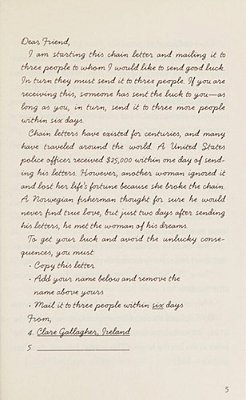 Dear Friend,
I am starting this chain letter and mailing it to
three people to whom I would like to send good luck.
In turn they must send it to three people. If you are
receiving this, someone has sent the luck to you—as
long as you, in turn, send it to three more people
within six days.
Chain letters have existed for centuries, and many
have traveled around the world. A United States
police officer received $25,000 within one day of send-
ing his letters. However, another woman ignored it
and lost her life's fortune because she broke the chain.
A Norwegian fisherman thought for sure he would
never find true love, but just two days after sending
his letters, he met the woman of his dreams.
To get your luck and avoid the unlucky conse-
quences, you must:
· Copy this letter
· Add your name below and remove the
name above yours
· Mail it to three people within six days
From,
4. Clare Gallagher, Ireland
5.
5